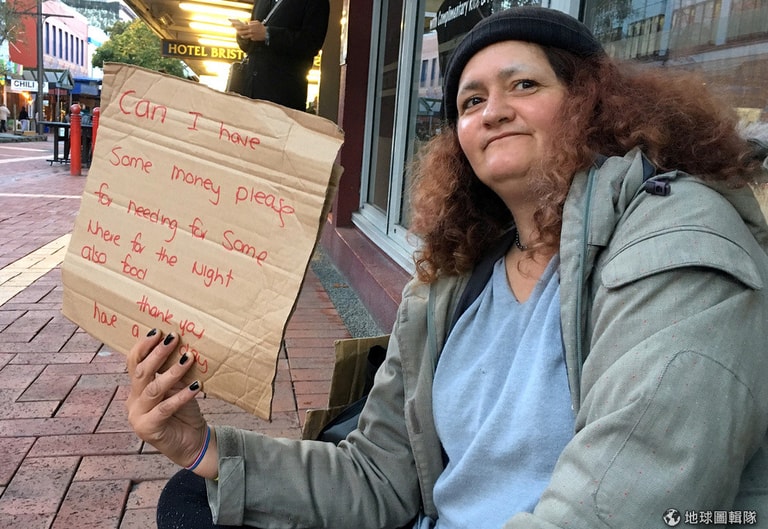 HOTEL BRIST
CHILI
Complimentary
Can I have
Some money please
for needing for Some
Where for the Night
also food
thank you
have a day
地球圖輯隊